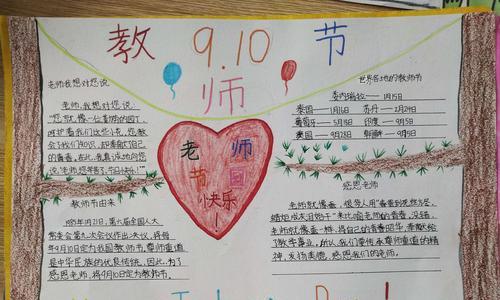 教 9.10 节
师
老师我想对您说
老师,我想对您说:
"您就像一位勤劳的园丁,
呵护着我们这些小花,您教
会了我们知识,却奉献了自己
的青春,在此,我真诚地向您
说:老师,您辛苦了,节日快乐!"
世界各地的教师节
委内瑞拉——1月15日
泰国——1月16日 苏丹——2月24日
葡萄牙——5月18日 印度——9月5日
美国——9月28日 朝鲜——9月5日
老 师
节 日
快乐
!
教师节由来
1985年1月21日,第六届全国人大
常委会第九次会议作出决议,将每
年9月10日定为我国教师节。尊师重道
是中华民族的优良传统,因此,为了
感恩老师,将9月10日定为教师节。
感恩老师
老师就像蚕,很旁人用"春蚕到死丝方尽,
蜡炬成灰泪始干"来比喻老师的青春,没错,
老师就像蚕一样,将自己的青春时华 奉献给
了教学事业。所以,我们要传承尊师重道的精
神,发扬美德,感恩我们的老师。